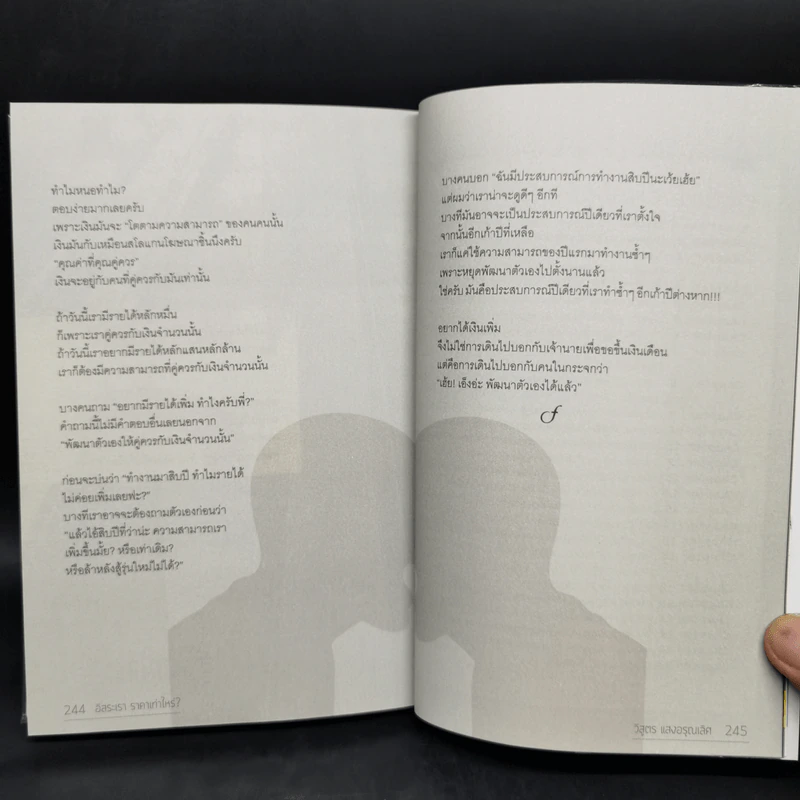 ทำไมหนอทำไม?
ตอบง่ายมากเลยครับ
เพราะเงินมันจะ "โตตามความสามารถ" ของคนคนนั้น
เงินมันก็เหมือนสโลแกนโฆษณาชิ้นนึงครับ
"คุณค่าที่คุณคู่ควร"
เงินจะอยู่กับคนที่คู่ควรกับมันเท่านั้น
ถ้าวันนี้เรามีรายได้หลักหมื่น
ก็เพราะเราคู่ควรกับเงินจำนวนนั้น
ถ้าวันนี้เราอยากมีรายได้หลักแสนหลักล้าน
เราก็ต้องมีความสามารถที่คู่ควรกับเงินจำนวนนั้น
บางคนถาม "อยากมีรายได้เพิ่ม ทำไงครับพี่?"
คำถามนี้ไม่มีคำตอบอื่นเลยนอกจาก
"พัฒนาตัวเองให้คู่ควรกับเงินจำนวนนั้น"
ก่อนจะบ่นว่า "ทำงานมาสิบปี ทำไมรายได้
ไม่ค่อยเพิ่มเลยฟะ?"
บางทีเราอาจจะต้องถามตัวเองก่อนว่า
"แล้วไอ้สิบปีที่ว่าน่ะ ความสามารถเรา
เพิ่มขึ้นมั้ย? หรือเท่าเดิม?
หรือล้าหลังสู้รุ่นใหม่ไม่ได้?"
244 อิสระเรา ราคาเท่าไหร่?
บางคนบอก "ฉันมีประสบการณ์การทำงานสิบปีนะเว้ยเฮ้ย"
แต่ผมว่าเราน่าจะดูดีๆ อีกที
บางทีมันอาจจะเป็นประสบการณ์ปีเดียวที่เราตั้งใจ
จากนั้นอีกเก้าปีที่เหลือ
เราก็แค่ใช้ความสามารถของปีแรกมาทำงานซ้ำๆ
เพราะหยุดพัฒนาตัวเองไปตั้งนานแล้ว
ใช่ครับ มันคือประสบการณ์ปีเดียวที่เราทำซ้ำๆ อีกเก้าปีต่างหาก!!!
อยากได้เงินเพิ่ม
จึงไม่ใช่การเดินไปบอกกับเจ้านายเพื่อขอขึ้นเงินเดือน
แต่คือการเดินไปบอกกับคนในกระจกว่า
"เฮ้ย! เอ็งอ่ะ พัฒนาตัวเองได้แล้ว"
f
วิสูตร แสงอรุณเลิศ 245